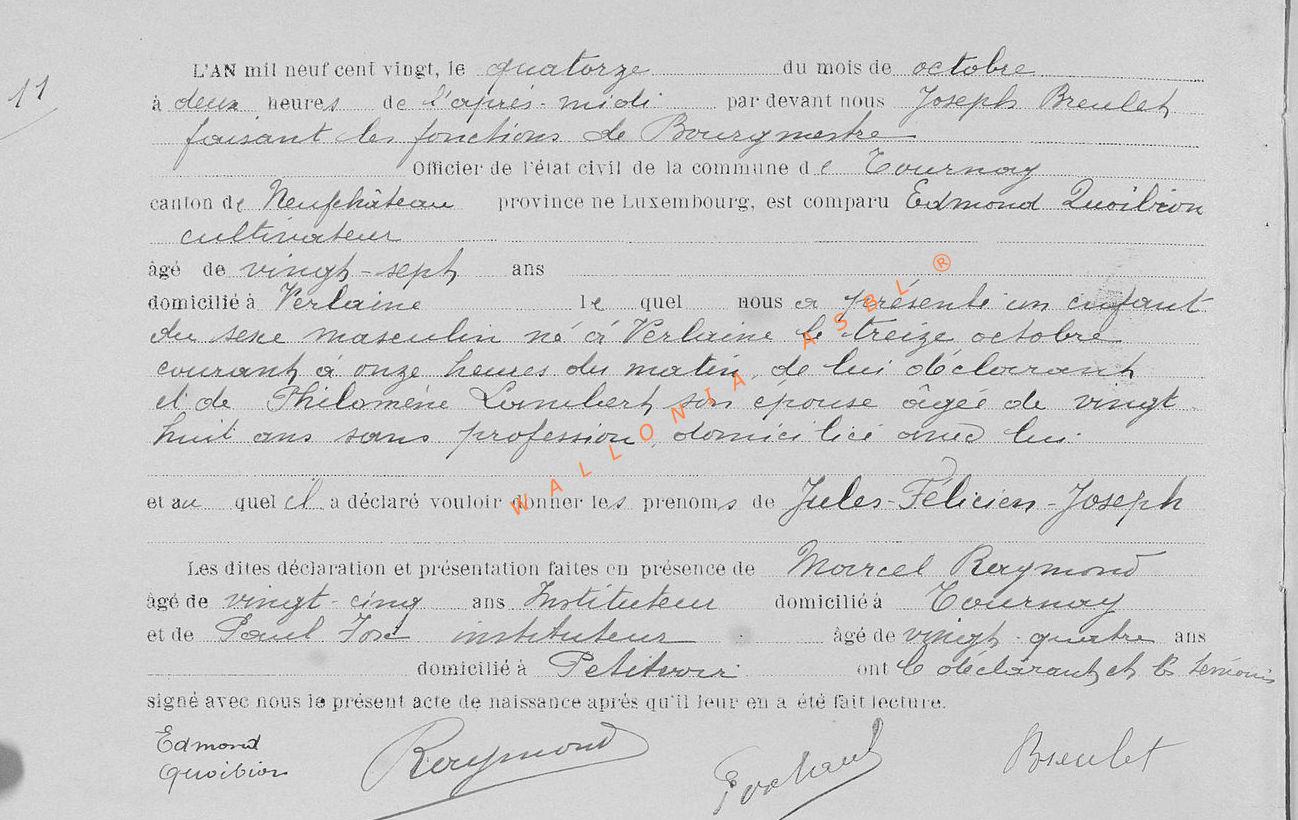 11
L'AN mil neuf cent vingt, le quatorze du mois de octobre
à deux heures de l'après-midi par devant nous Joseph Breulet
faisant les fonctions de Bourgmestre
Officier de l'état civil de la commune de Tournay
canton de Neufchâteau province ne Luxembourg, est comparu Edmond Quoibion
cultivateur
âgé de vingt-sept ans
domicilié à Verlaine le quel nous a présenté un enfant
du sexe masculin né à Verlaine le treize octobre
courant à onze heures du matin, de lui déclarant
et de Philomène Lambert son épouse âgée de vingt
huit ans sans profession, domiciliée avec lui.
et au quel il a déclaré vouloir donner les prenoms de Jules-Félicien-Joseph
Les dites déclaration et présentation faites en présence de Marcel Raymond
âgé de vingt-cinq ans Instituteur domicilié à Tournay
et de Paul instituteur âgé de vingt-quatre ans
domicilié à Petitvoir ont le déclarant et les témoins
signé avec nous le présent acte de naissance après qu'il leur en a été fait lecture.
Edmond
Quoibion
Raymond
Breulet
WALLONIA ASBL ®